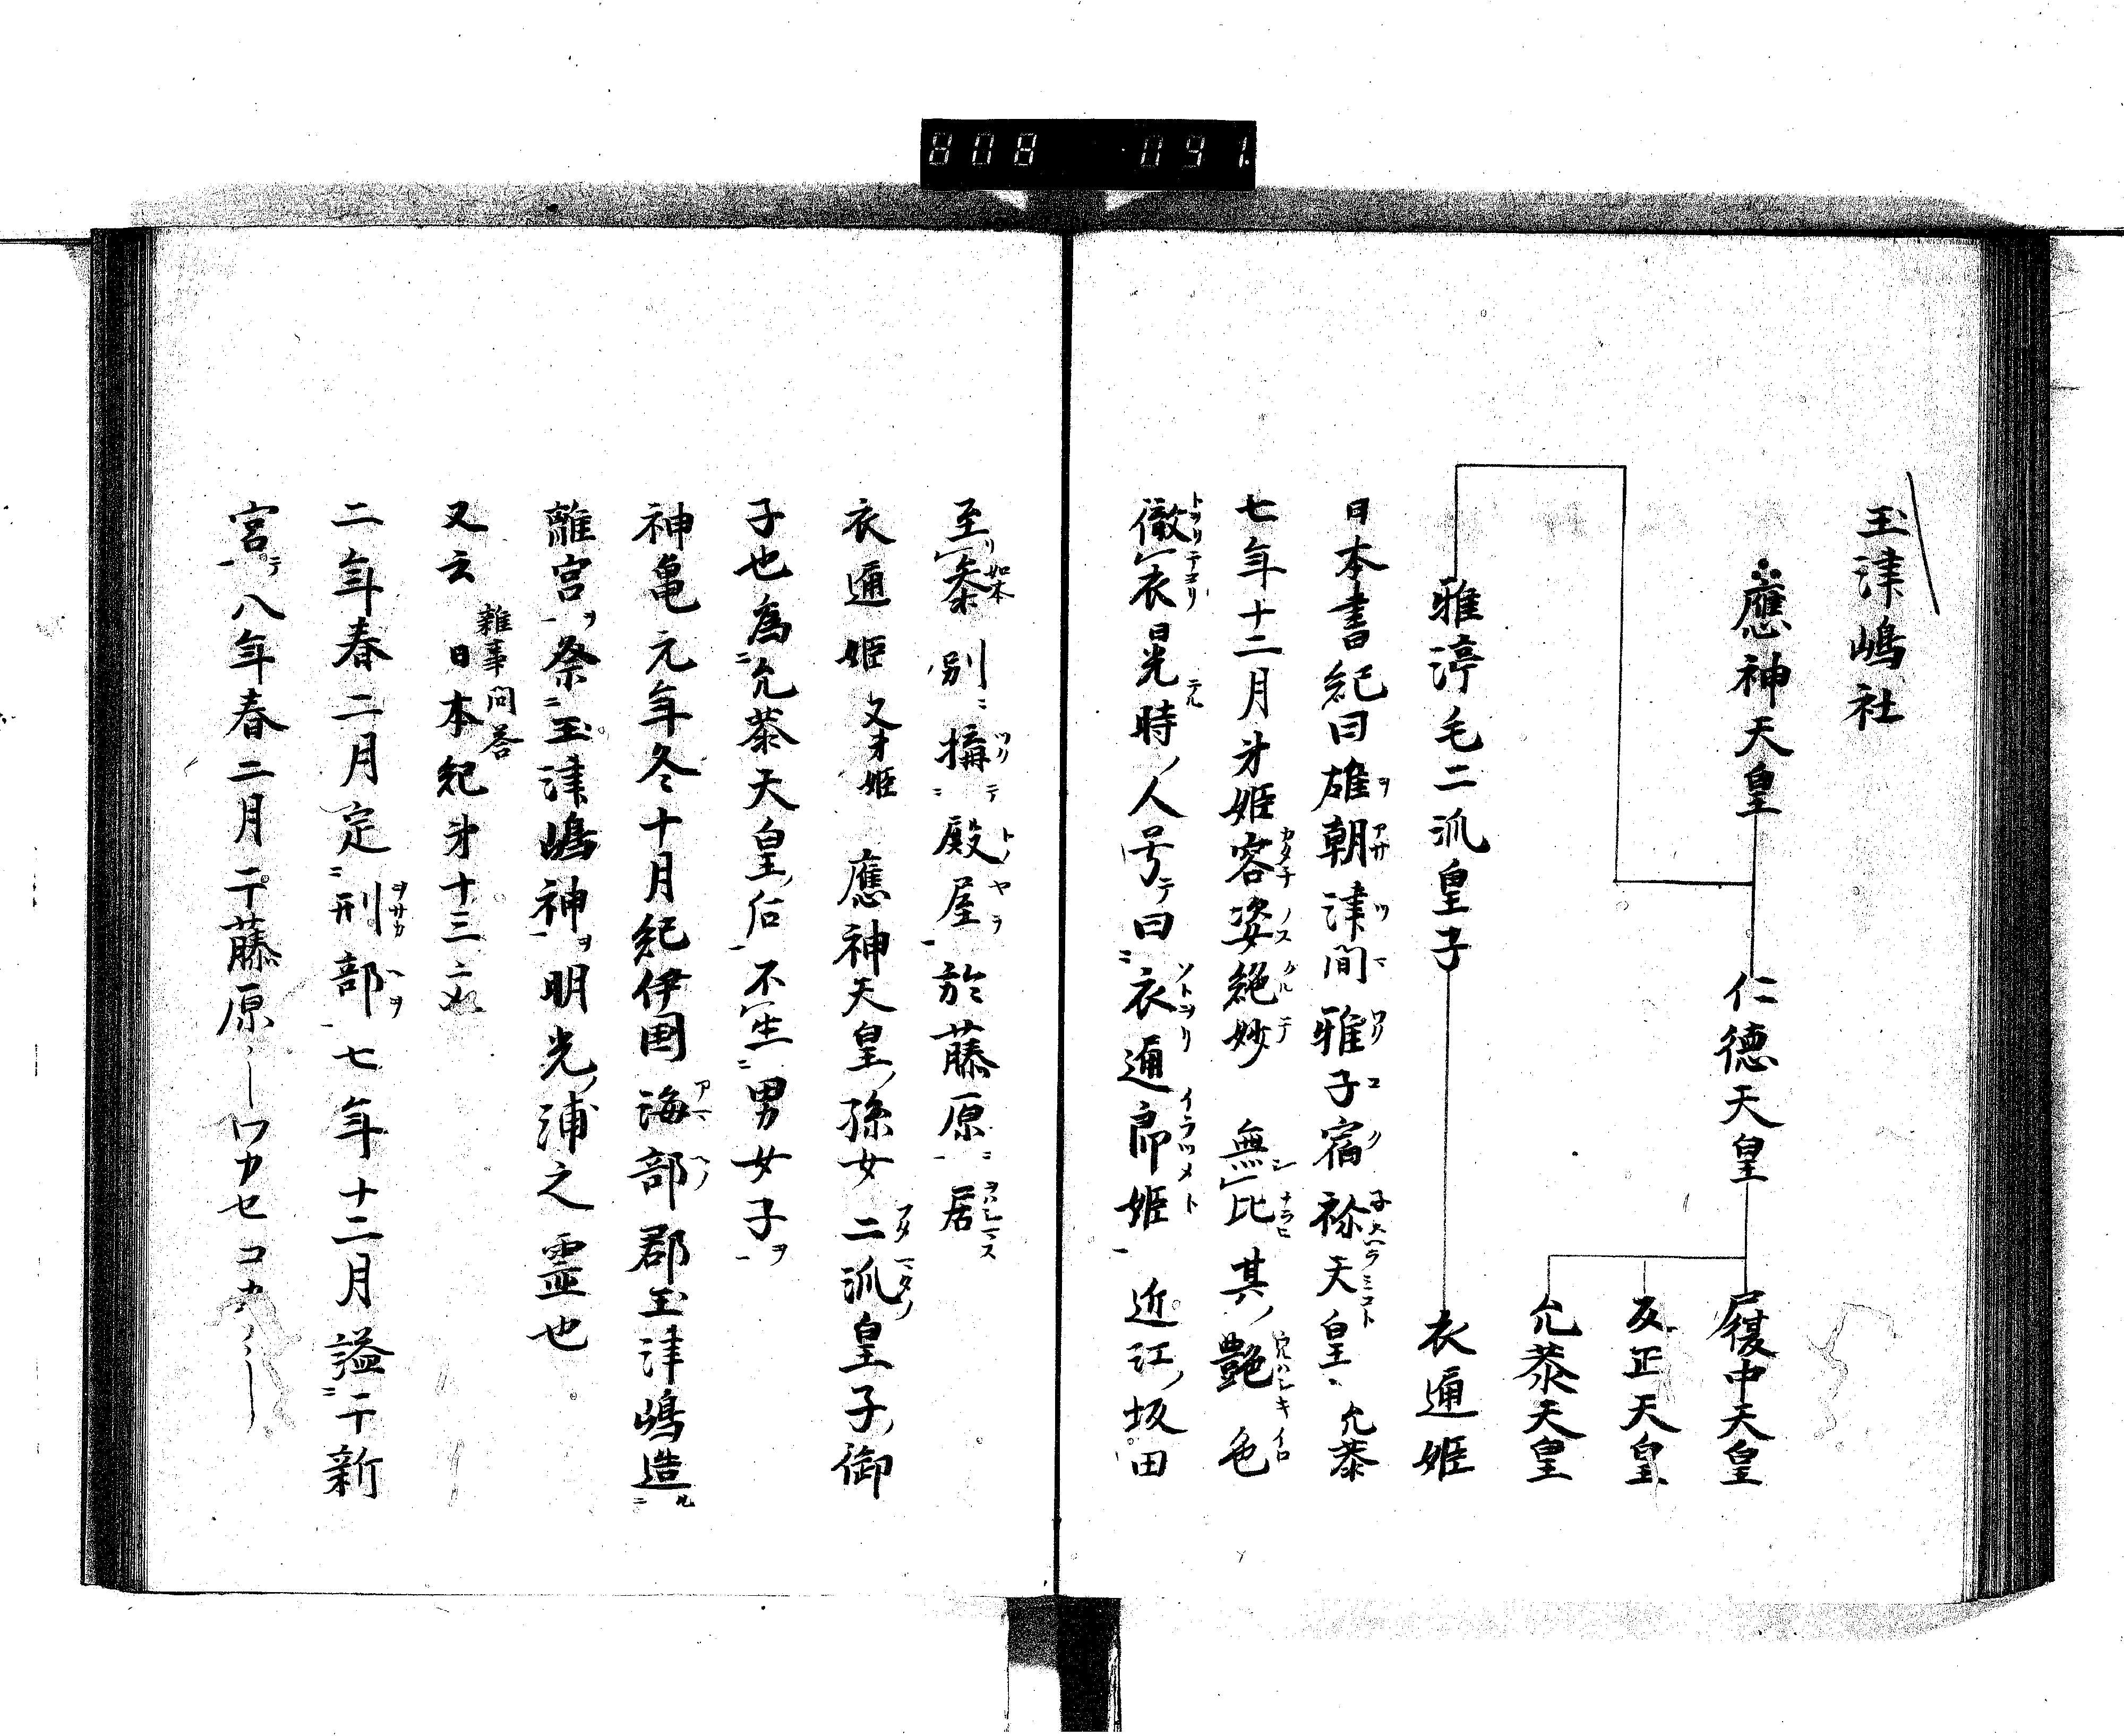 808 091.
玉津嶋社
應神天皇
仁徳天皇
履中天皇
反正天皇
允恭天皇
雅渟毛二派皇子
衣通姫
日本書紀曰雄朝津間雅子宿祢天皇、允恭
七年十二月弟姫容姿絶妙 無比其ノ艶色
徹衣晃時ノ人号テ曰衣通郎姫 近江ノ坂田
至 別搆殿屋於藤原居
衣通姫 又弟姫 應神天皇ノ孫女二派皇子ノ御
子也為允恭天皇ノ后不生男女子ヲ
神亀元年冬十月紀伊国海部郡玉津嶋造
離宮ヲ祭玉津嶋神ヲ明光ノ浦之霊也
又云 雑事問答 日本紀弟十三
二年春二月定刑部ヲ七年十二月謚于新
宮テ八年春二月于藤原ーワカセコカ